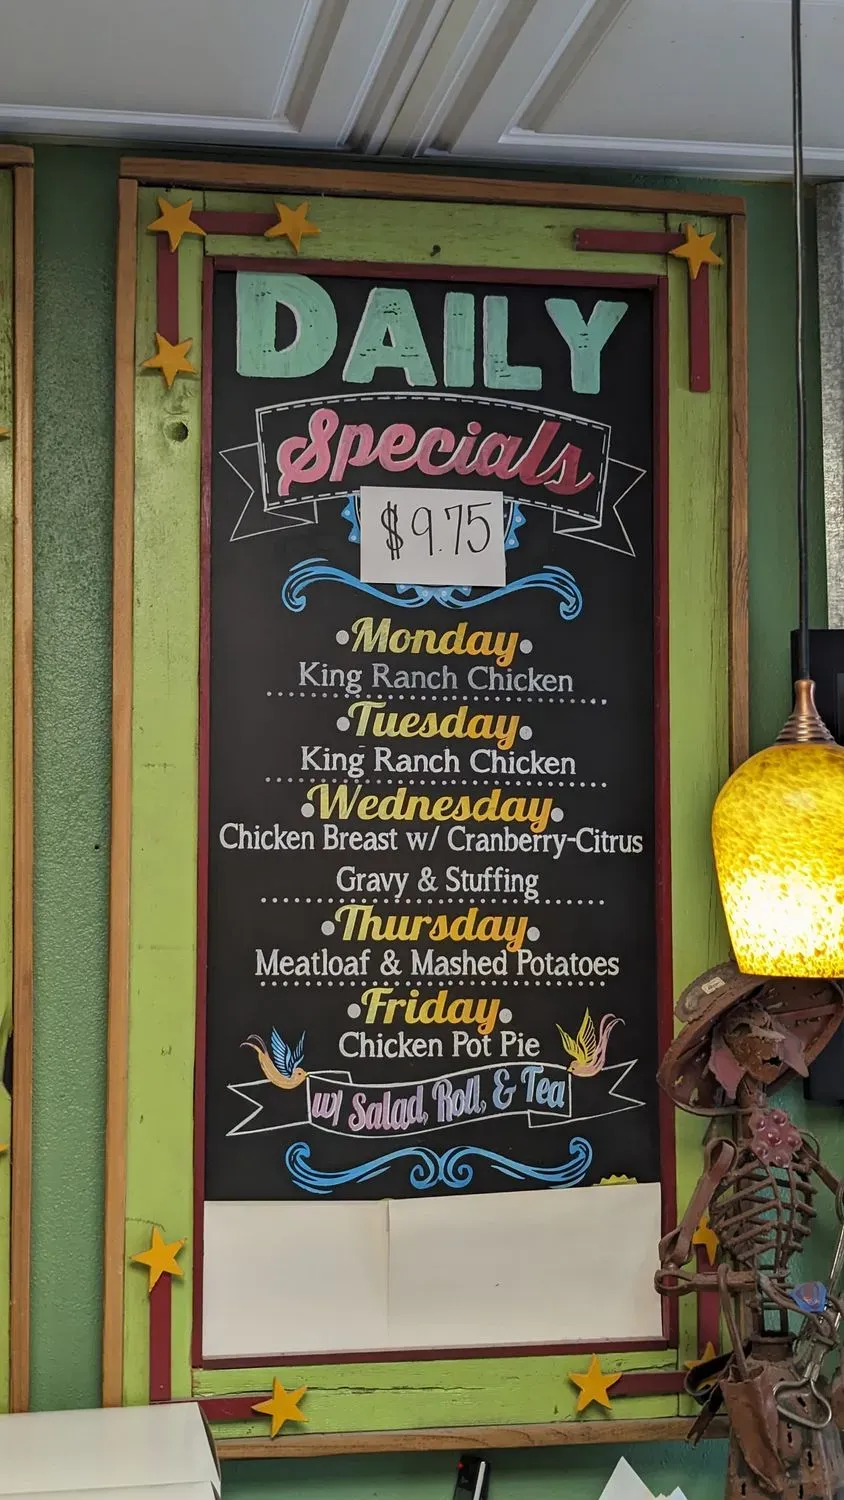 DAILY
Specials
$9.75
Monday
King Ranch Chicken
Tuesday
King Ranch Chicken
Wednesday
Chicken Breast w/ Cranberry-Citrus
Gravy & Stuffing
Thursday
Meatloaf & Mashed Potatoes
Friday
Chicken Pot Pie
w/ Salad, Roll, & Tea